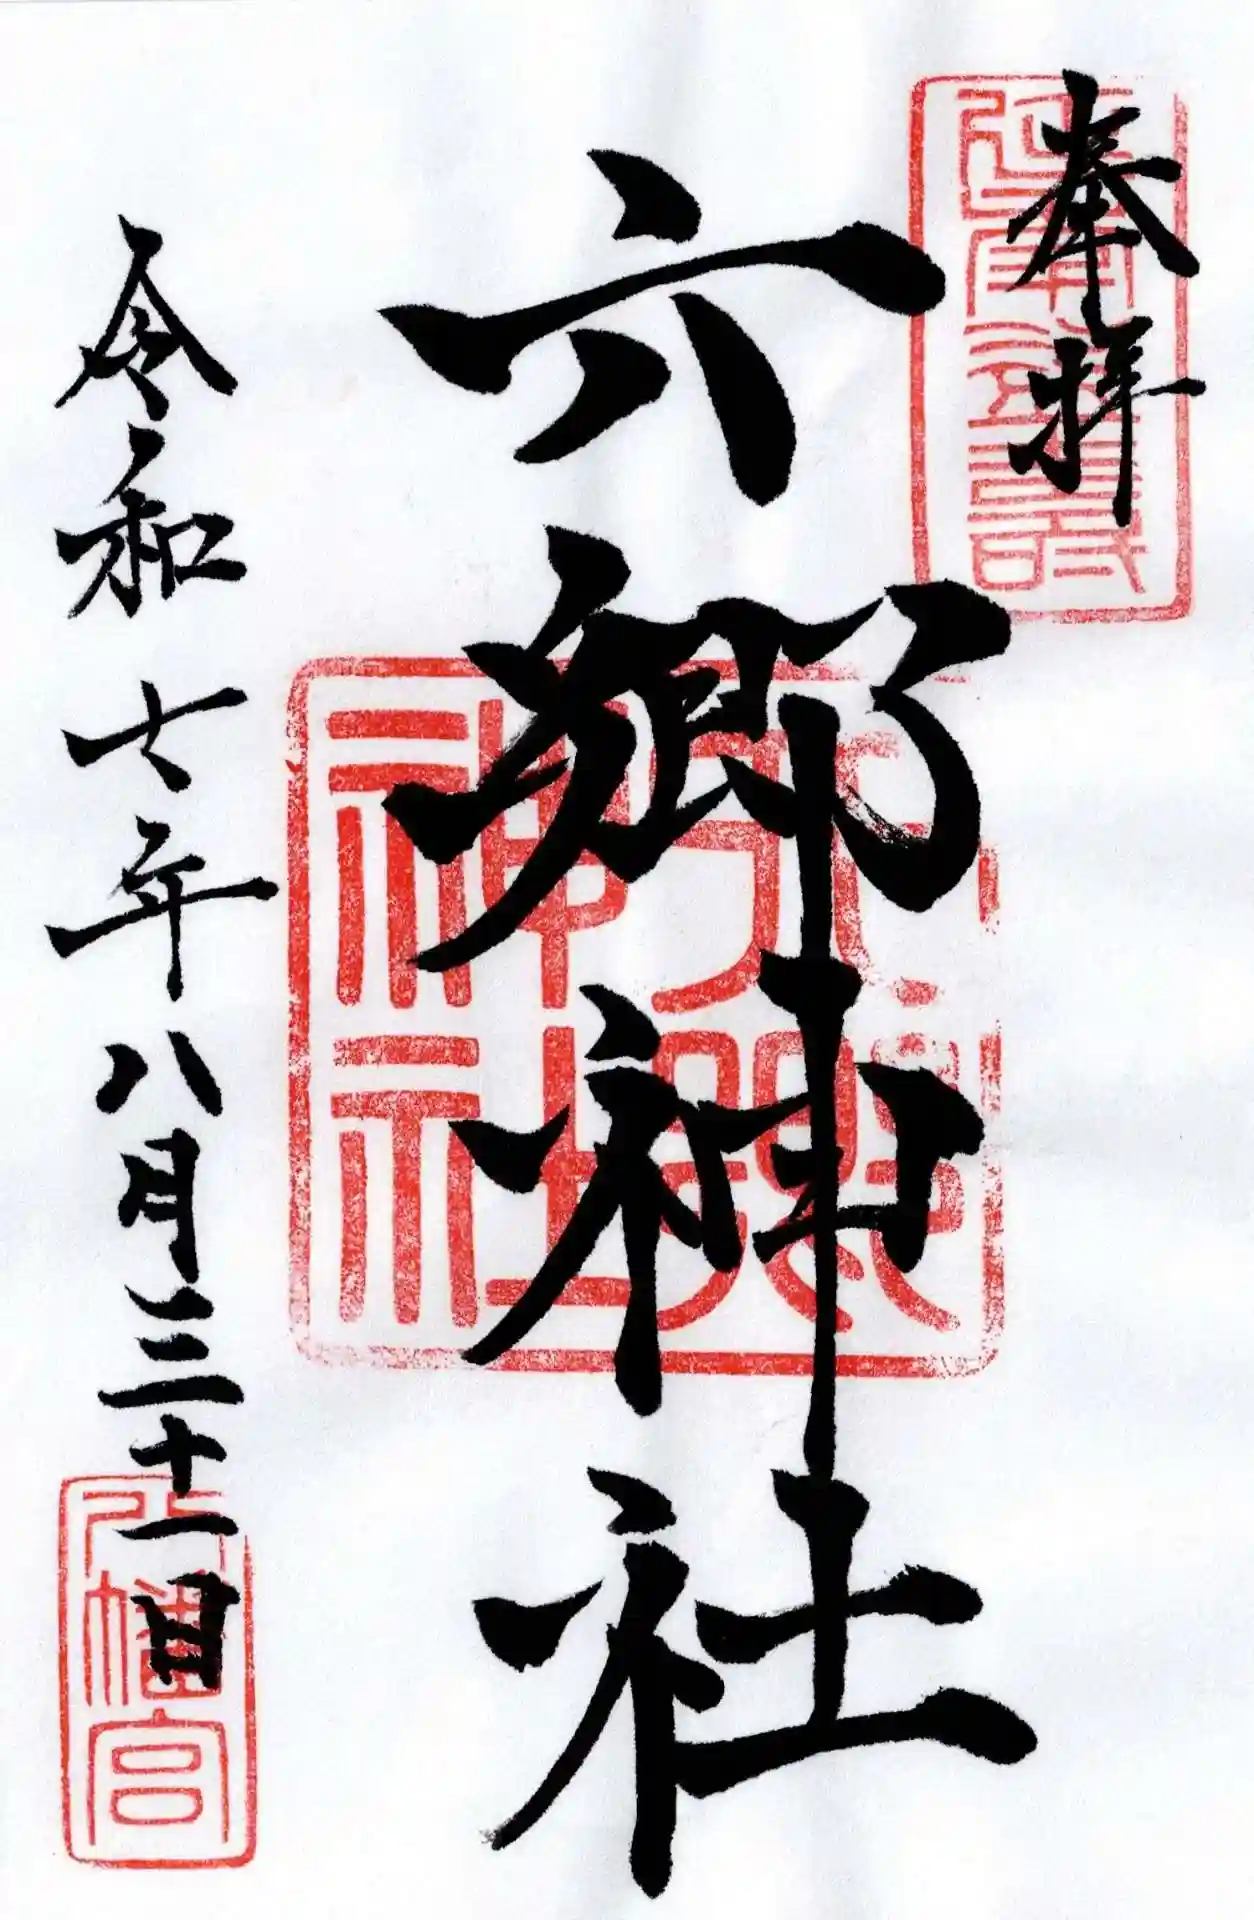 奉拝
六郷神社
六郷神社
令和七年八月三十一日
八幡宮